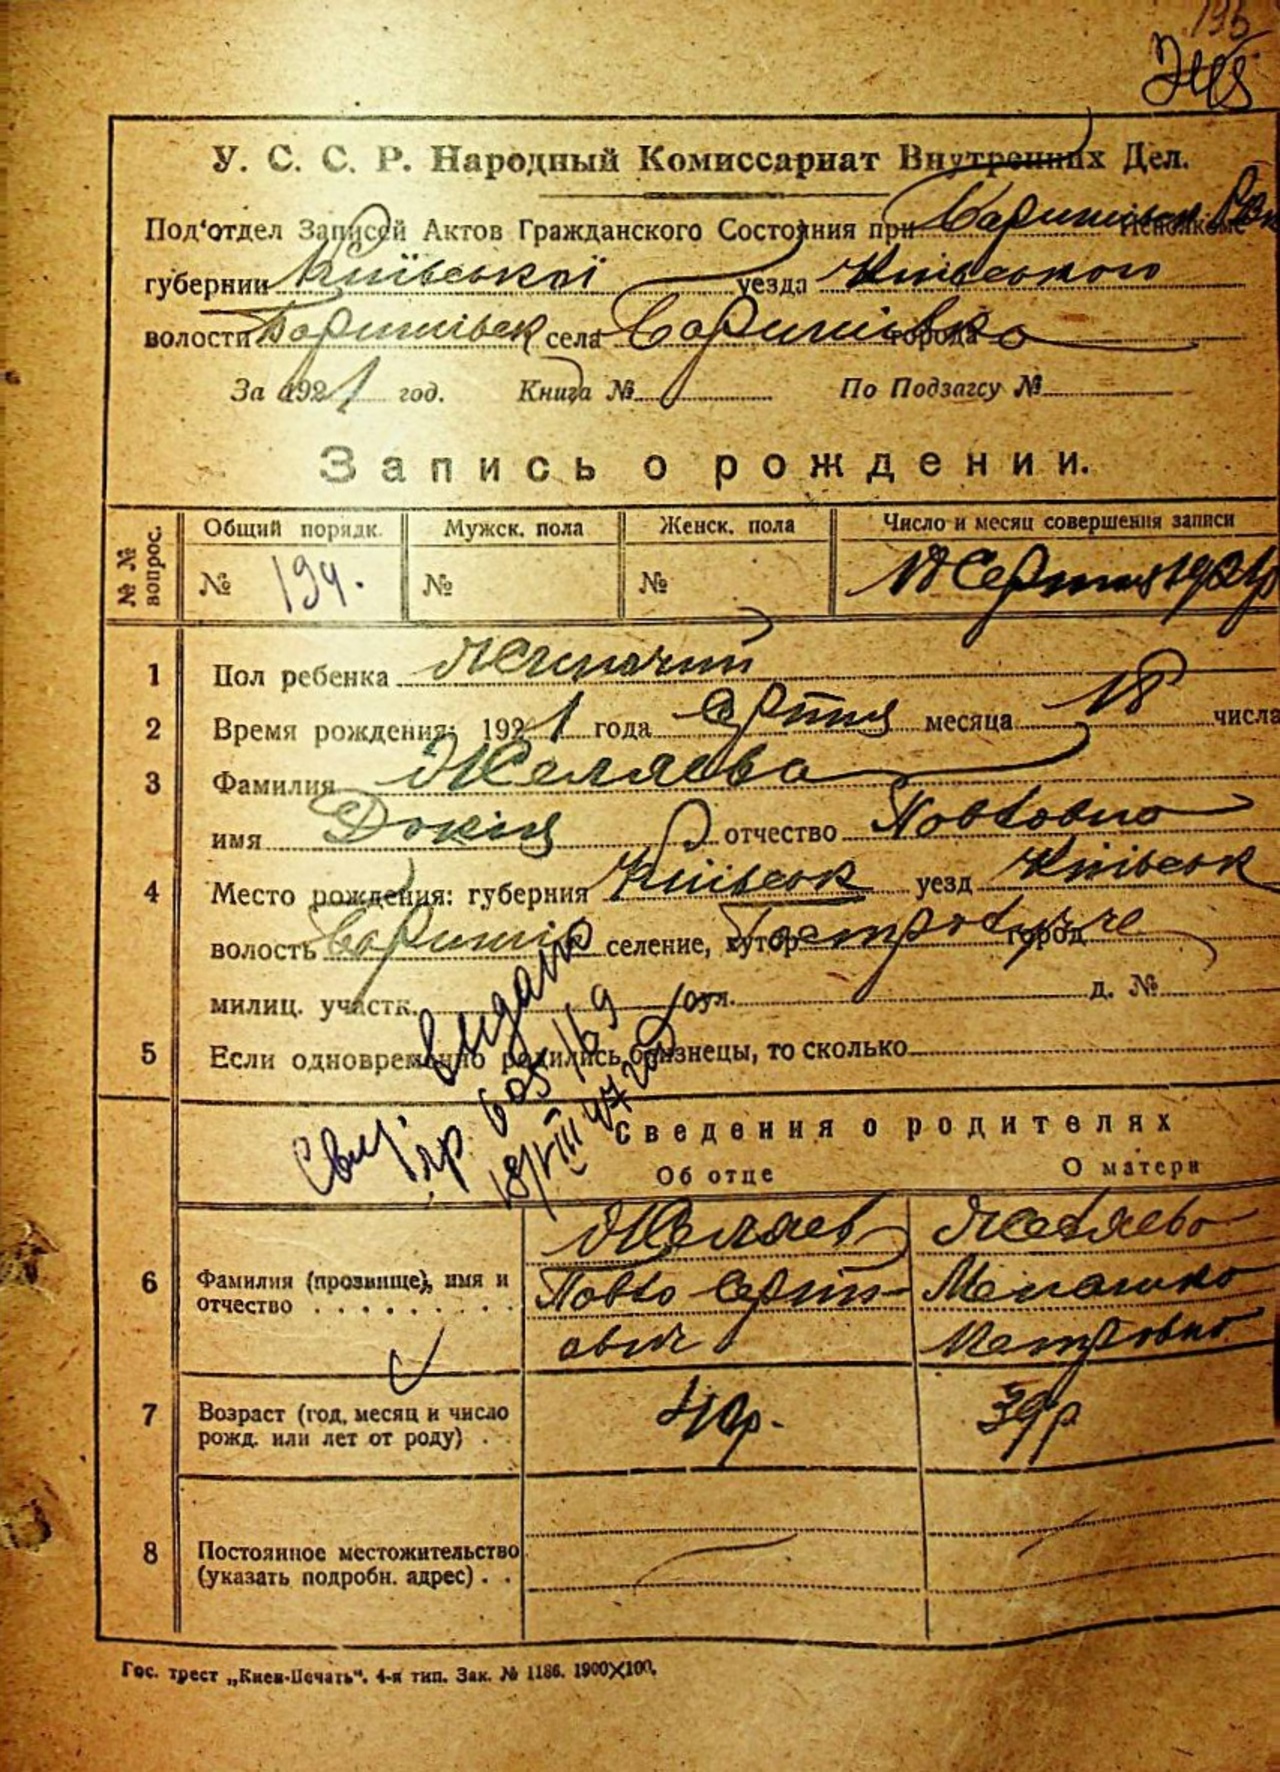 195
У. С. С. Р. Народный Комиссариат Внутренних Дел.
Под'отдел Записей Актов Гражданского Состояния при Баришівськ
губернии Київської уезда Київського
волости Баришівськ села Баришівка города
За 1921 год. Книга № По Подзагсу №
Запись о рождении.
№ № вопрос. Общий порядк. Мужск. пола Женск. пола Число и месяц совершения записи
№ 194. № № 18 Серпня 1921р
1 Пол ребенка Жіночий
2 Время рождения: 1921 года Серпня месяца 18 числа
3 Фамилия Желяева
имя Докія отчество Павловна
4 Место рождения: губерния Київськ уезд Київськ
волость Баришів селение, хутор город
милиц. участк. ул. д. №
5 Если одновременно родились близнецы, то сколько
Видано
Свид. 168
18/VIII 47
Сведения о родителях
Об отце О матери
6 Фамилия (прозвище), имя и отчество Желяев Желяева
Павло Мелашка
ович Петровна
7 Возраст (год, месяц и число рожд. или лет от роду) 40р. 39р
8 Постоянное местожительство (указать подробн. адрес)
Гос. трест „Киев-Печать“. 4-я тип. Зак. № 1186. 1900×100.